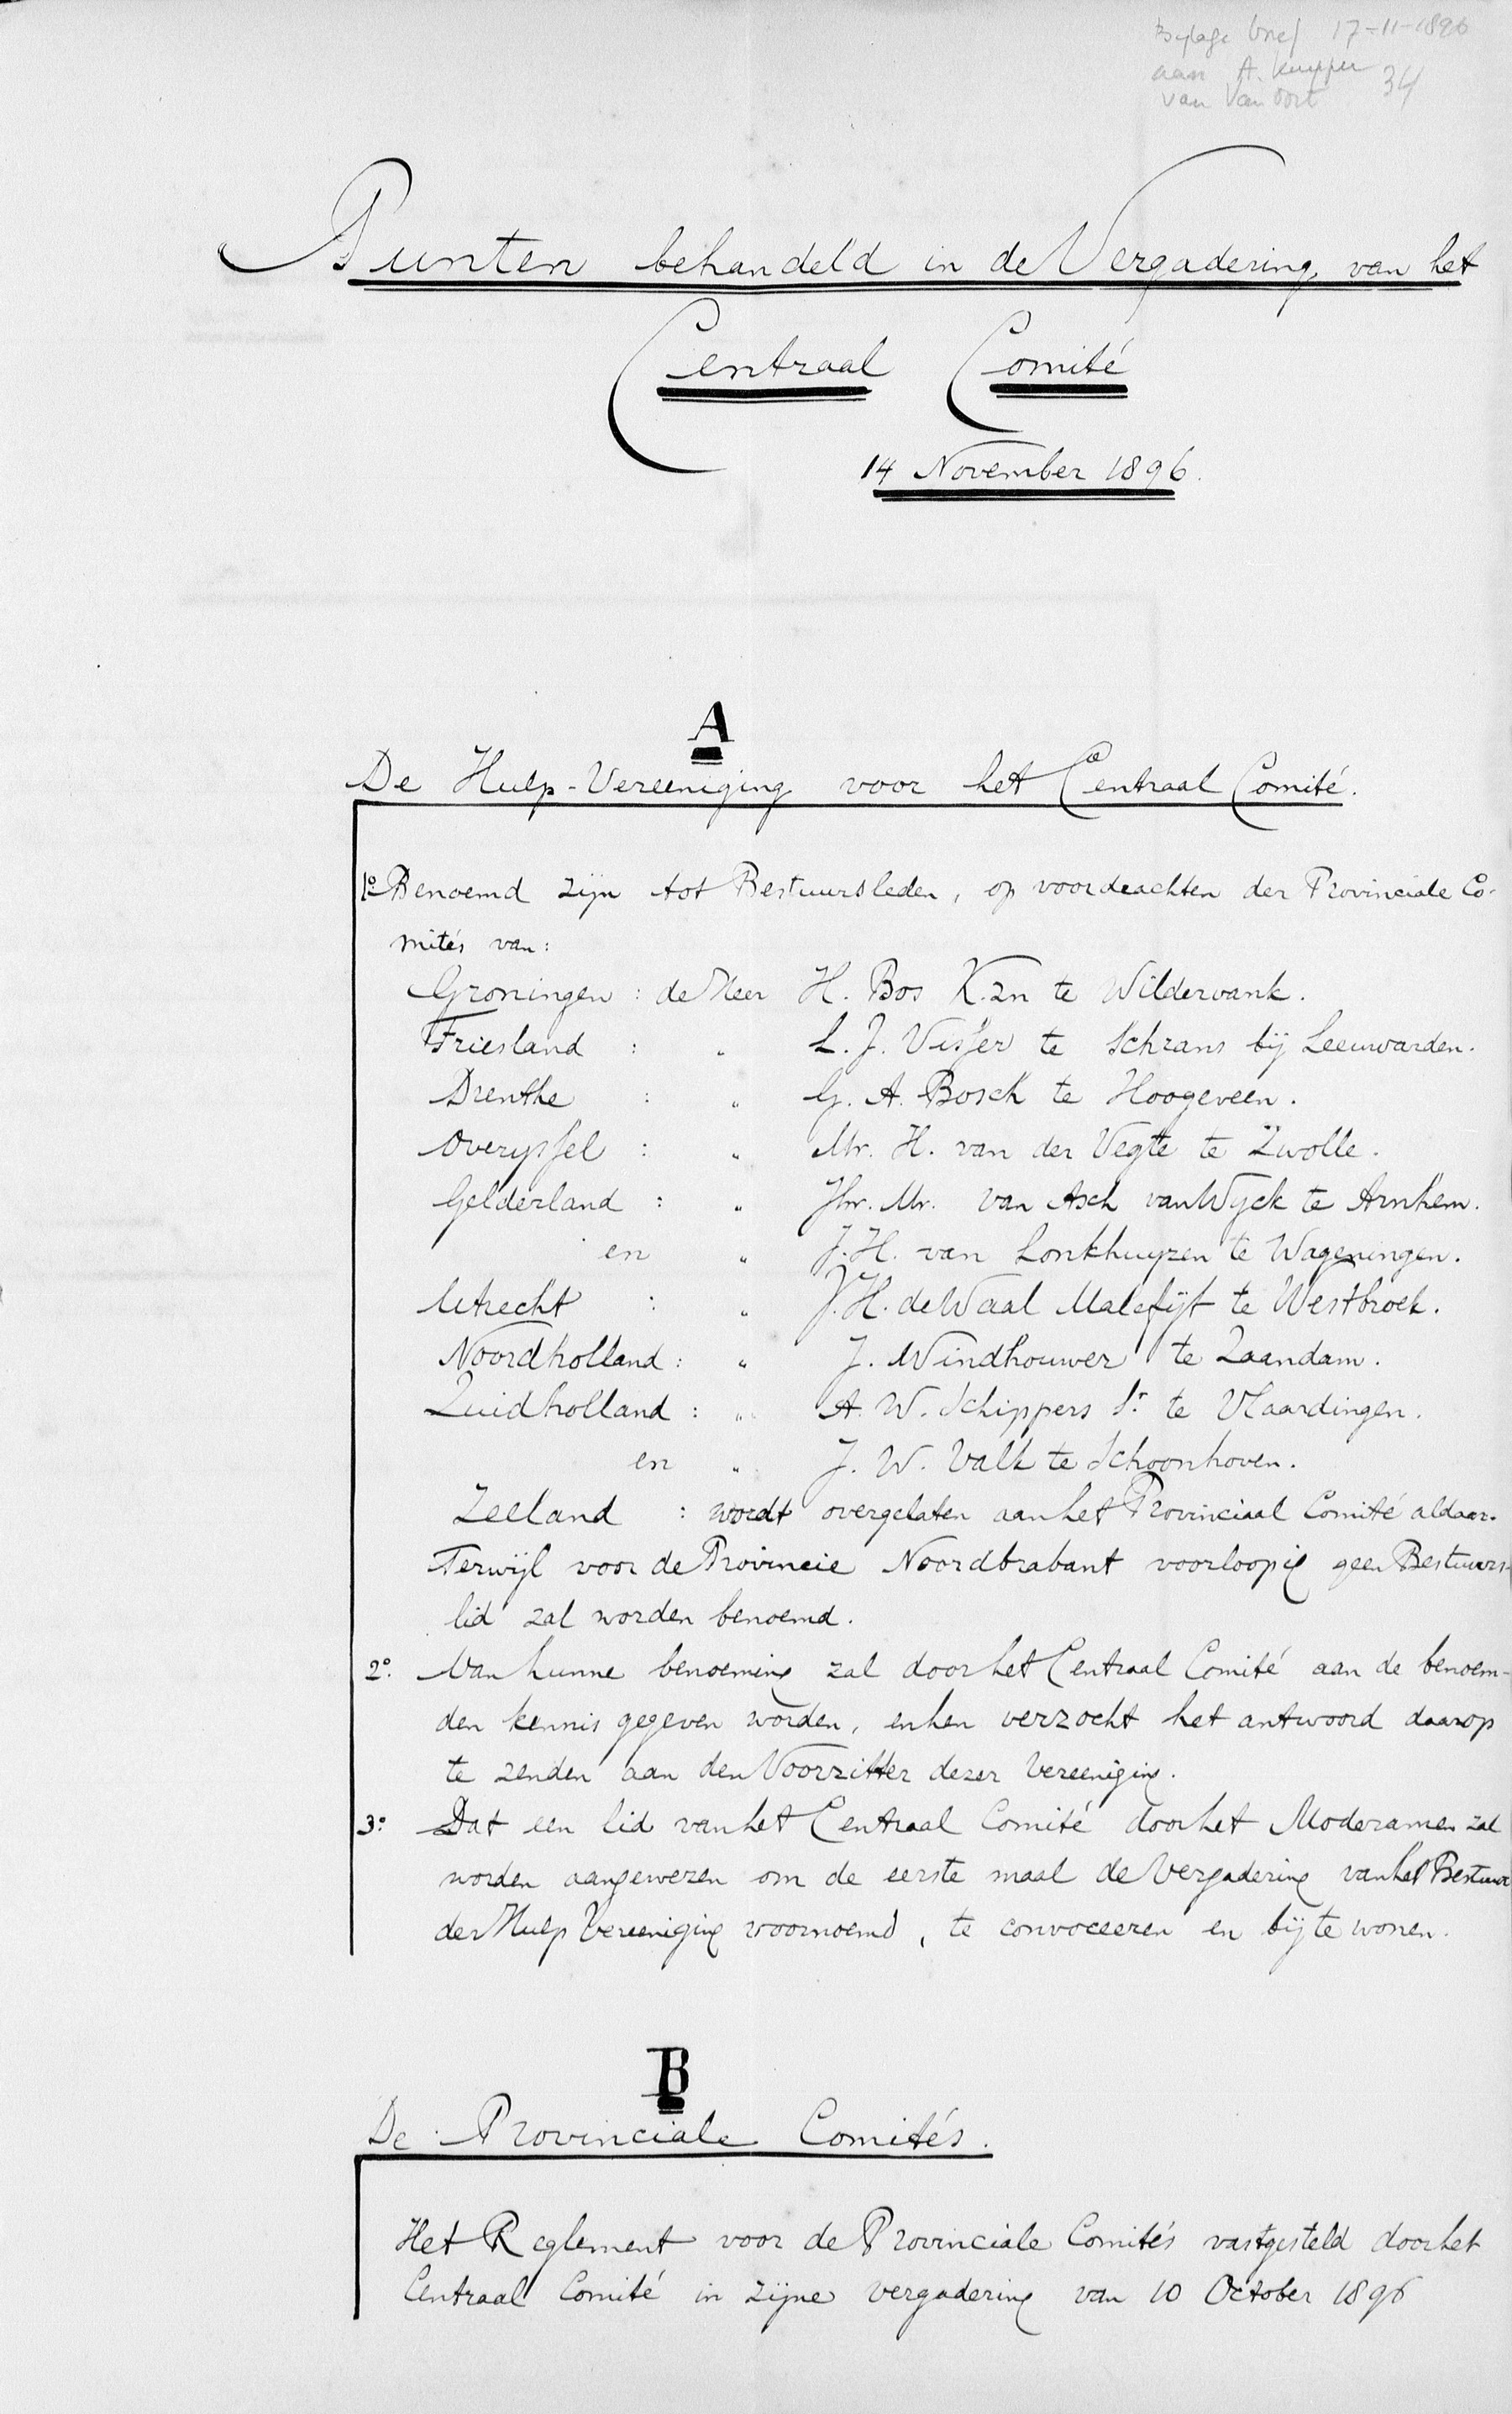 Bylage brief 17-11-1896
aan A. Kuyper 34
van Van Oort
Punten behandeld in de Vergadering van het
Centraal Comité
14 November 1896.
A
De Hulp-Vereeniging voor het Centraal Comité.
1º Benoemd zijn tot Bestuursleden, op voordrachten der Provinciale Co-
mités van:
Groningen : de Heer H. Bos K.zn te Wildervank.
Friesland : " L. J. Visser te Schrans bij Leeuwarden.
Drenthe : " G. A. Bosch te Hoogeveen.
Overyssel : " Mr. H. van der Vegte te Zwolle.
Gelderland : " Jhr. Mr. van Asch van Wyck te Arnhem.
en " J. H. van Lonkhuyzen te Wageningen.
Utrecht : " J. H. de Waal Malefijt te Westbroek.
Noordholland : " J. Windhouwer te Zaandam.
Zuidholland : " A. W. Schippers Sr te Vlaardingen.
en " J. W. Valk te Schoonhoven.
Zeeland : wordt overgelaten aan het Provinciaal Comité aldaar.
Terwijl voor de Provincie Noordbrabant voorloopig geen Bestuurs-
lid zal worden benoemd.
2º. Van hunne benoeming zal door het Centraal Comité aan de benoem-
den kennis gegeven worden, en hen verzocht het antwoord daarop
te zenden aan den Voorzitter dezer Vereeniging.
3º. Dat een lid van het Centraal Comité door het Moderamen zal
worden aangewezen om de eerste maal de Vergadering van het Bestuur
der Hulp Vereeniging voornoemd, te convoceeren en bij te wonen.
B
De Provinciale Comités.
Het Reglement voor de Provinciale Comités vastgesteld door het
Centraal Comité in zijne vergadering van 10 October 1896